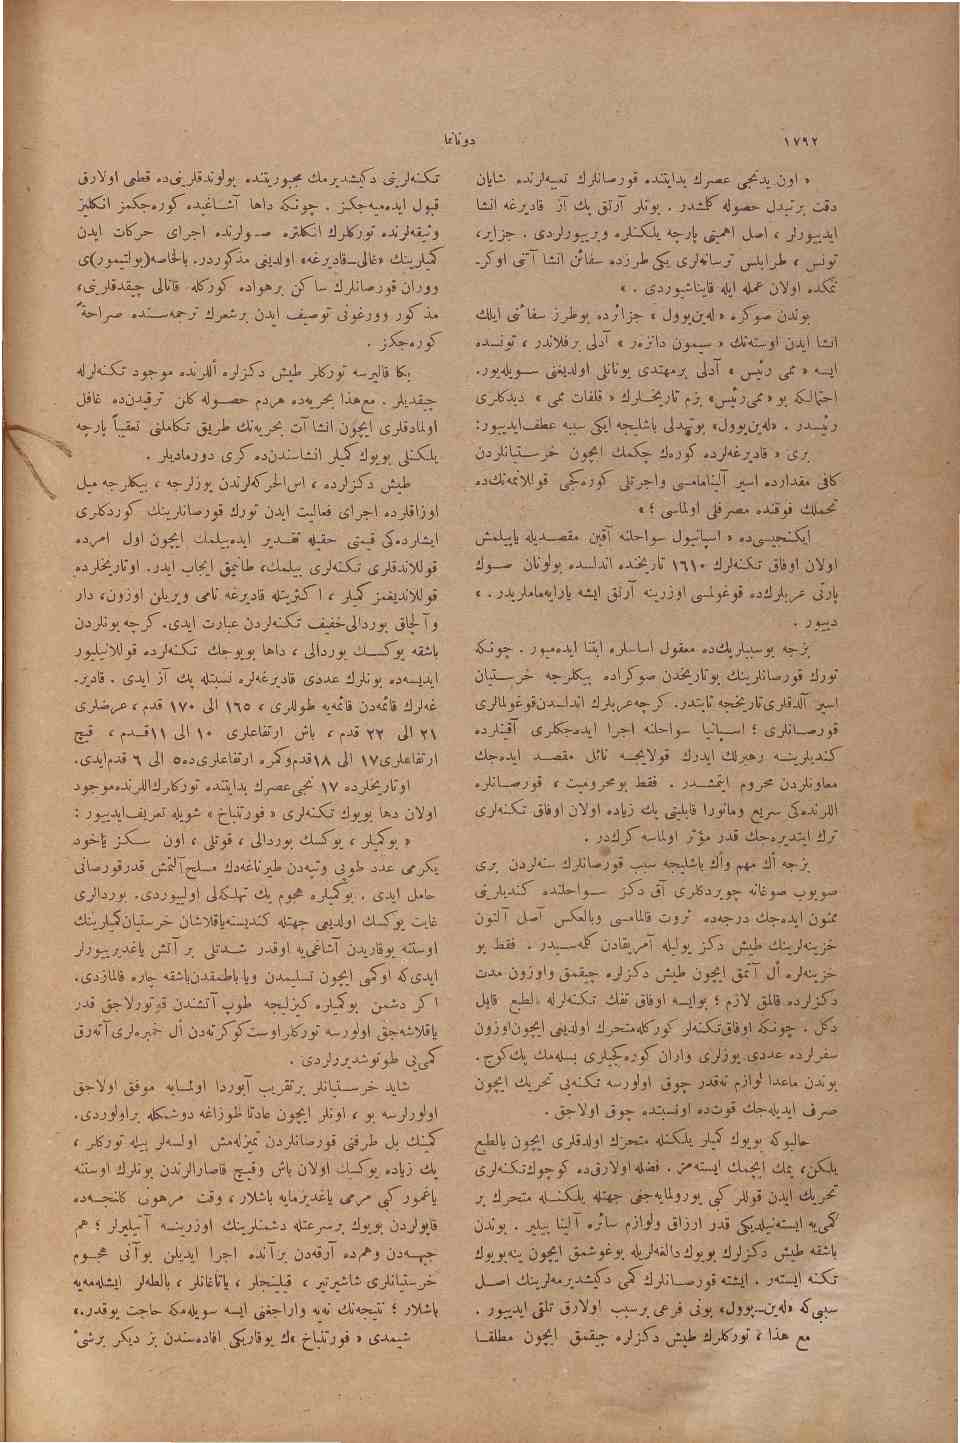 ١٧٩٢
دوناما
« اون يدنجى عصرك بدايتنده قورصانلرك تعبيه‌لرنده شايان
دقت برتبدل حصوله كلشدر . بونلر آرتق پك آز قادرغه انشا
ايدييورلر ، اصل اهميتى پارچه يلكنلره ويرييورلردى . جزاير،
تونس ، طرابلس ترسانه‌لرى يكى طرزده سفائن انشا آتنى اوكر-
نمكده اولان عمله ايله قايناشيوردى . »
بوندن صوكره « له‌ين‌پوول » جزائرده بوطرز سفائنى ايلك
انشا ايدن اوسته‌نك « سيمون دانزه‌ر » آدلى برفلاندر ، تونسده
ايسه « ممى رئيس » آدلى برمهتدى يونانلى اولديغنى سويله‌يور.
احتمالكه بو « ممى‌رئيس» بزم تاريخلرك « قلفات ممى » ديدكلرى
رئيسدر . «له‌ين‌پوول» بوتبدلى باشليجه ايكى سببه عطف‌ايدييور:
برى « قادرغه‌لرده كورەك چكمك ايچون خرستيانلردن
كافى مقدارده اسير آلينامامسى واجرتلى كوره‌كجى قوللانمه‌نك‌ده
تحملك فوقنده مصرفلى اولماسى ؛ »
ايكنجيسى‌ده « اسپانيول سواحلنه آقين مقصديله ياپيلمش
اولان اوفاق تكنه‌لرك ١٦١٠ تاريخنده اندلسده بولونان صوك
پارتى عربلرك‌ده قوغولمسى اوزرينه آرتق ايشه يارايه‌ماملريدر. »
دييور .
بزجه بوسببلريك‌ده معقول اساسلره ابتنا ايده‌ميور . چونكه
تورك قورصانلرينك بوتاريخدن صوكراده بيكلرجه خرستيان
اسير آلدقلرى‌تاريخجه ثابتدر. كرچه‌عربلرك اندلسدن‌قوغولمالرى
قورصانلرى ؛ اسپانيا سواحلنه اجرا ايده‌جكلرى آقينلرده
كنديلرينه رهبرلك ايدرك قولايجه نائل مقصد ايده‌جك
معاونلردن محروم ايتمشدر . فقط بومحروميت ، قورصانلره
اللرنده‌كى سريع ومانورا قابليتى پك زياده اولان اوفاق تكنه‌لرى
ترك ايتديره‌جك قدر مؤثر اولماسه كرك‌در .
بزجه اك مهم واك باشليجه سبب قورصانلرك سنه‌لردن برى
صويوب صوغانه چويردكلرى آق دكز سواحلنده كنديلرينى
ممنون ايده‌جك درجه‌ده ثروت قالمامسى وبالعكس اصل آلتون
خزينه‌لرينك طيش دكز يوليله آمريقادن كلمه‌سيدر . فقط بو
خزينه‌لره أل آتمق ايچون طيش دكزلره چيقمق واوزون مدت
دكزلرده قالمق لازم ؛ بوايسه اوفاق تفك تكنه‌لرله بالطبع قابل
دكل . چونكه اوفاق‌تكنه‌لر كوركله‌متحرك اولديغى ايچون‌اوزون
سفرلرده عددى يوزلرى واران كوره‌كجيلرى بسله‌مك پك‌كوج.
بوندن ماعدا لوازم نه‌قدر چوق اولورسه تكنه‌يى تحريك ايچون
صرف ايديله‌جك قوتده اونسبتده چوق اولاجق .
حالبوكه بويوك كميلر يلكنله متحرك اولدقلرى ايچون بالطبع
يلكن، يمك ايچمك ايسته‌مز . فضله اولارق‌ده كوچوك‌تكنه‌لرى
تحريك ايدن قوللر كبى يورولمايه‌جغى جهتله يلكنله متحرك بر
كمى‌يه ايستنيلديكى قدر ارزاق ولوازم سائره آلينا بيلير . بوندن
باشقه طيش دكزلرك بويوك‌دالغه‌لريله بوغوشمق ايچون ينه‌بويوك
تكنه ايستر . ايشته قورصانلرك كمى دكيشديرمه‌لرينك اصل
سببى‌كه «له‌ين-پوول» بونى فرعى برسبب اولارق تلقى ايدييور .
مع هذا ، توركلرك طيش دكزلره چيقمق ايچون مطلقا
تكنه‌لرينى دكيشديرمك مجبوريتنده بولوندقلرينى‌ده قطعى اولارق
قبول ايده‌ميه‌جكز . چونكه داها آشاغيده كوره‌جكمز انكليز
وثيقه‌لرنده توركلرك انكلتره صولرنده اجراى حركات ايدن
كميلرينك «غالى-قاديرغه» اولديغى مذكوردر. بالخاصه(بولتيمور)ى
ووران قورصانلرك ساكن برهواده كوركله قانالى چيقدقلرينى،
مذكور وورغونى توصيف ايدن برشعرك ترجمه‌سنده صراحةً
كوره‌جكز .
بكا قاليرسه توركلر طيش دكزلره أللرنده موجود تكنه‌لرله
چيقديلر . مع‌هذا بحريه‌ده هردم حصوله كلن ترقيدن‌ده غافل
اولمادقلرى ايچون انشاآت بحريه‌نك طريق تكاملنى تعقيباً پارچه
يلكنلى بويوك كميلر انشاسندن‌ده كرى دورماديلر .
طيش دكزلرده ، اس‌الحركه‌لرندن يوزلرجه ، بيكلرجه ميل
اوزاقلرده اجراى فعاليت ايدن تورك قورصانلرينك كوردكلرى
ايشلرده‌كى قيمتى حقيله تقدير ايده‌بيلمك ايچون اول امرده
قوللاندقلرى تكنه‌لرى بيلمك، طانيمق ايجاب ايدر. اوتاريخلرده
قوللانديغمز كميلر ، اكثريتله قاديرغه نامى ويريلن اوزون، دار
وآلچاق بوردالى‌خفيف تكنه‌لردن عبارت ايدى. كرچه بونلردن
باشقه يوكسك بوردالى ، داها بويوجك تكنه‌لرده قوللانيليور
ايديسه‌ده بونلرك عددى قاديرغه‌لره نسبتله پك آز ايدى . قادير-
غه‌لرك قائمه‌دن قائمه‌يه طوللرى ، ١٦٥ الى ١٧٠ قدم ، عرضلرى
٢١ الى ٢٢ قدم ، باش ارتفاعلرى ١٠ الى ١١قدم ، قيچ
ارتفاعلرى١٧ الى ١٨قدم‌وكمره ارتفاعلرى‌ده٥ الى ٦ قدم‌ايدى.
اوتاريخلرده ١٧ نجى‌عصرك بدايتنده توركلرك‌اللرنده‌موجود
اولان دها بويوك تكنه‌لرى « فورتنباخ » شويله تعريف‌ايدييور :
« بوكميلر ، يوكسك بوردالى ، قوتلى ، اون سكز ياخود
يكرمى عدد طوپى وتيه‌دن طيرناغه‌دك مسلح‌آلتمش قدرقورصانى
حامل ايدى . بوكميلره هجوم پك تهلكه‌لى اوليوردى. بوردالرى
غايت يوكسك اولديغى جهتله كنديسنه‌ياقلاشان خرستيان‌كميلرينك
اوستنه يوقاريدن آشاغى‌يه اوقدر شدتلى بر آتش ياغديرييورلر
ايدى‌كه اوكمى ايچون تسليمدن ويا باطمقدن‌باشقه چاره قالمازدى.
اكر دشمن بوكميلره كيزليجه طوپ آتشندن قورتورلاجق قدر
ياقلاشه‌جق اولورسه توركلراوست‌كوكرته‌دن أل خمبره‌لرى‌آته‌رق
كمى‌يى طوتوشديررلردى .
شايد خرستيانلر برتقريب آبوردا اولمايه موفق اولاجق
اولورلرسه بو ، اونلر ايچون عادتا طوزاغه دوشمكله براولوردى.
كمينك بل طرفنى قورصانلردن تميزله‌مش اولسه‌لر بيله توركلر ،
پك زياده يوكسك اولان باش وقيچ قاصارالرندن بونلرك اوستنه
ياغمور كبى مرمى ياغديرمايه باشلار ، وقت مرهونى كلنجه‌ده
قاپولردن بويوك برسرعتله دشمنلرينك اوزرينه آتيليرلر ؛ هم
جبهه‌دن وهم‌ده آرقه‌دن برآنده اجرا ايديلن بوآنى هجوم
خرستيانلرى شاشيرتير ، قيلينجلر ، ياتاغانلر ، بالطه‌لر ايشله‌مه‌يه
باشلار ؛ نتيجه‌نك نه‌يه واراجغنى ايسه سويله‌مكه حاجت يوقدر.»
شيمدى « فورتنباخ »ك يوقاريكى افاده‌سندن بز ديكر برشئ